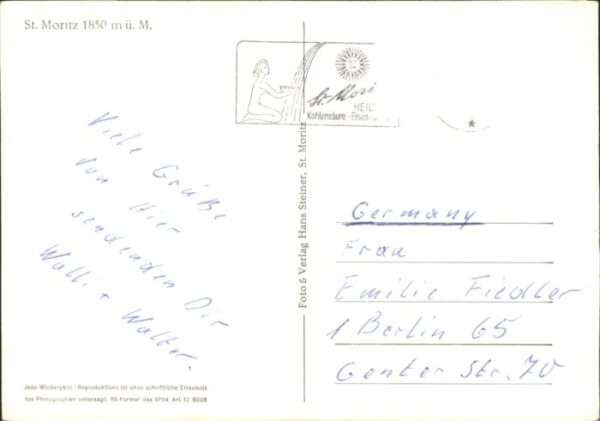 St. Moritz 1850 m ü. M.
St. Mori
HEIL
Kohlensäure - Eisen
Viele Grüße
von hier
senden Dir
Walli + Walter.
Foto & Verlag Hans Steiner, St. Moritz
Germany
Frau
Emilie Fiedler
1 Berlin 65
Genter Str. 70
Jede Wiedergabe / Reproduktions ist ohne schriftliche Erlaubnis
des Photographen untersagt.